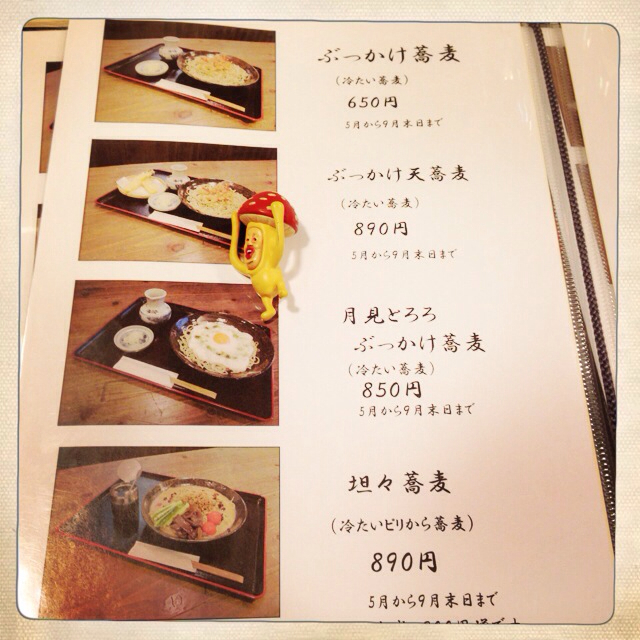 ぶっかけ蕎麦
(冷たい蕎麦)
650円
5月から9月末日まで
ぶっかけ天蕎麦
(冷たい蕎麦)
890円
5月から9月末日まで
月見とろろ
ぶっかけ蕎麦
(冷たい蕎麦)
850円
5月から9月末日まで
坦々蕎麦
(冷たいピリから蕎麦)
890円
5月から9月末日まで